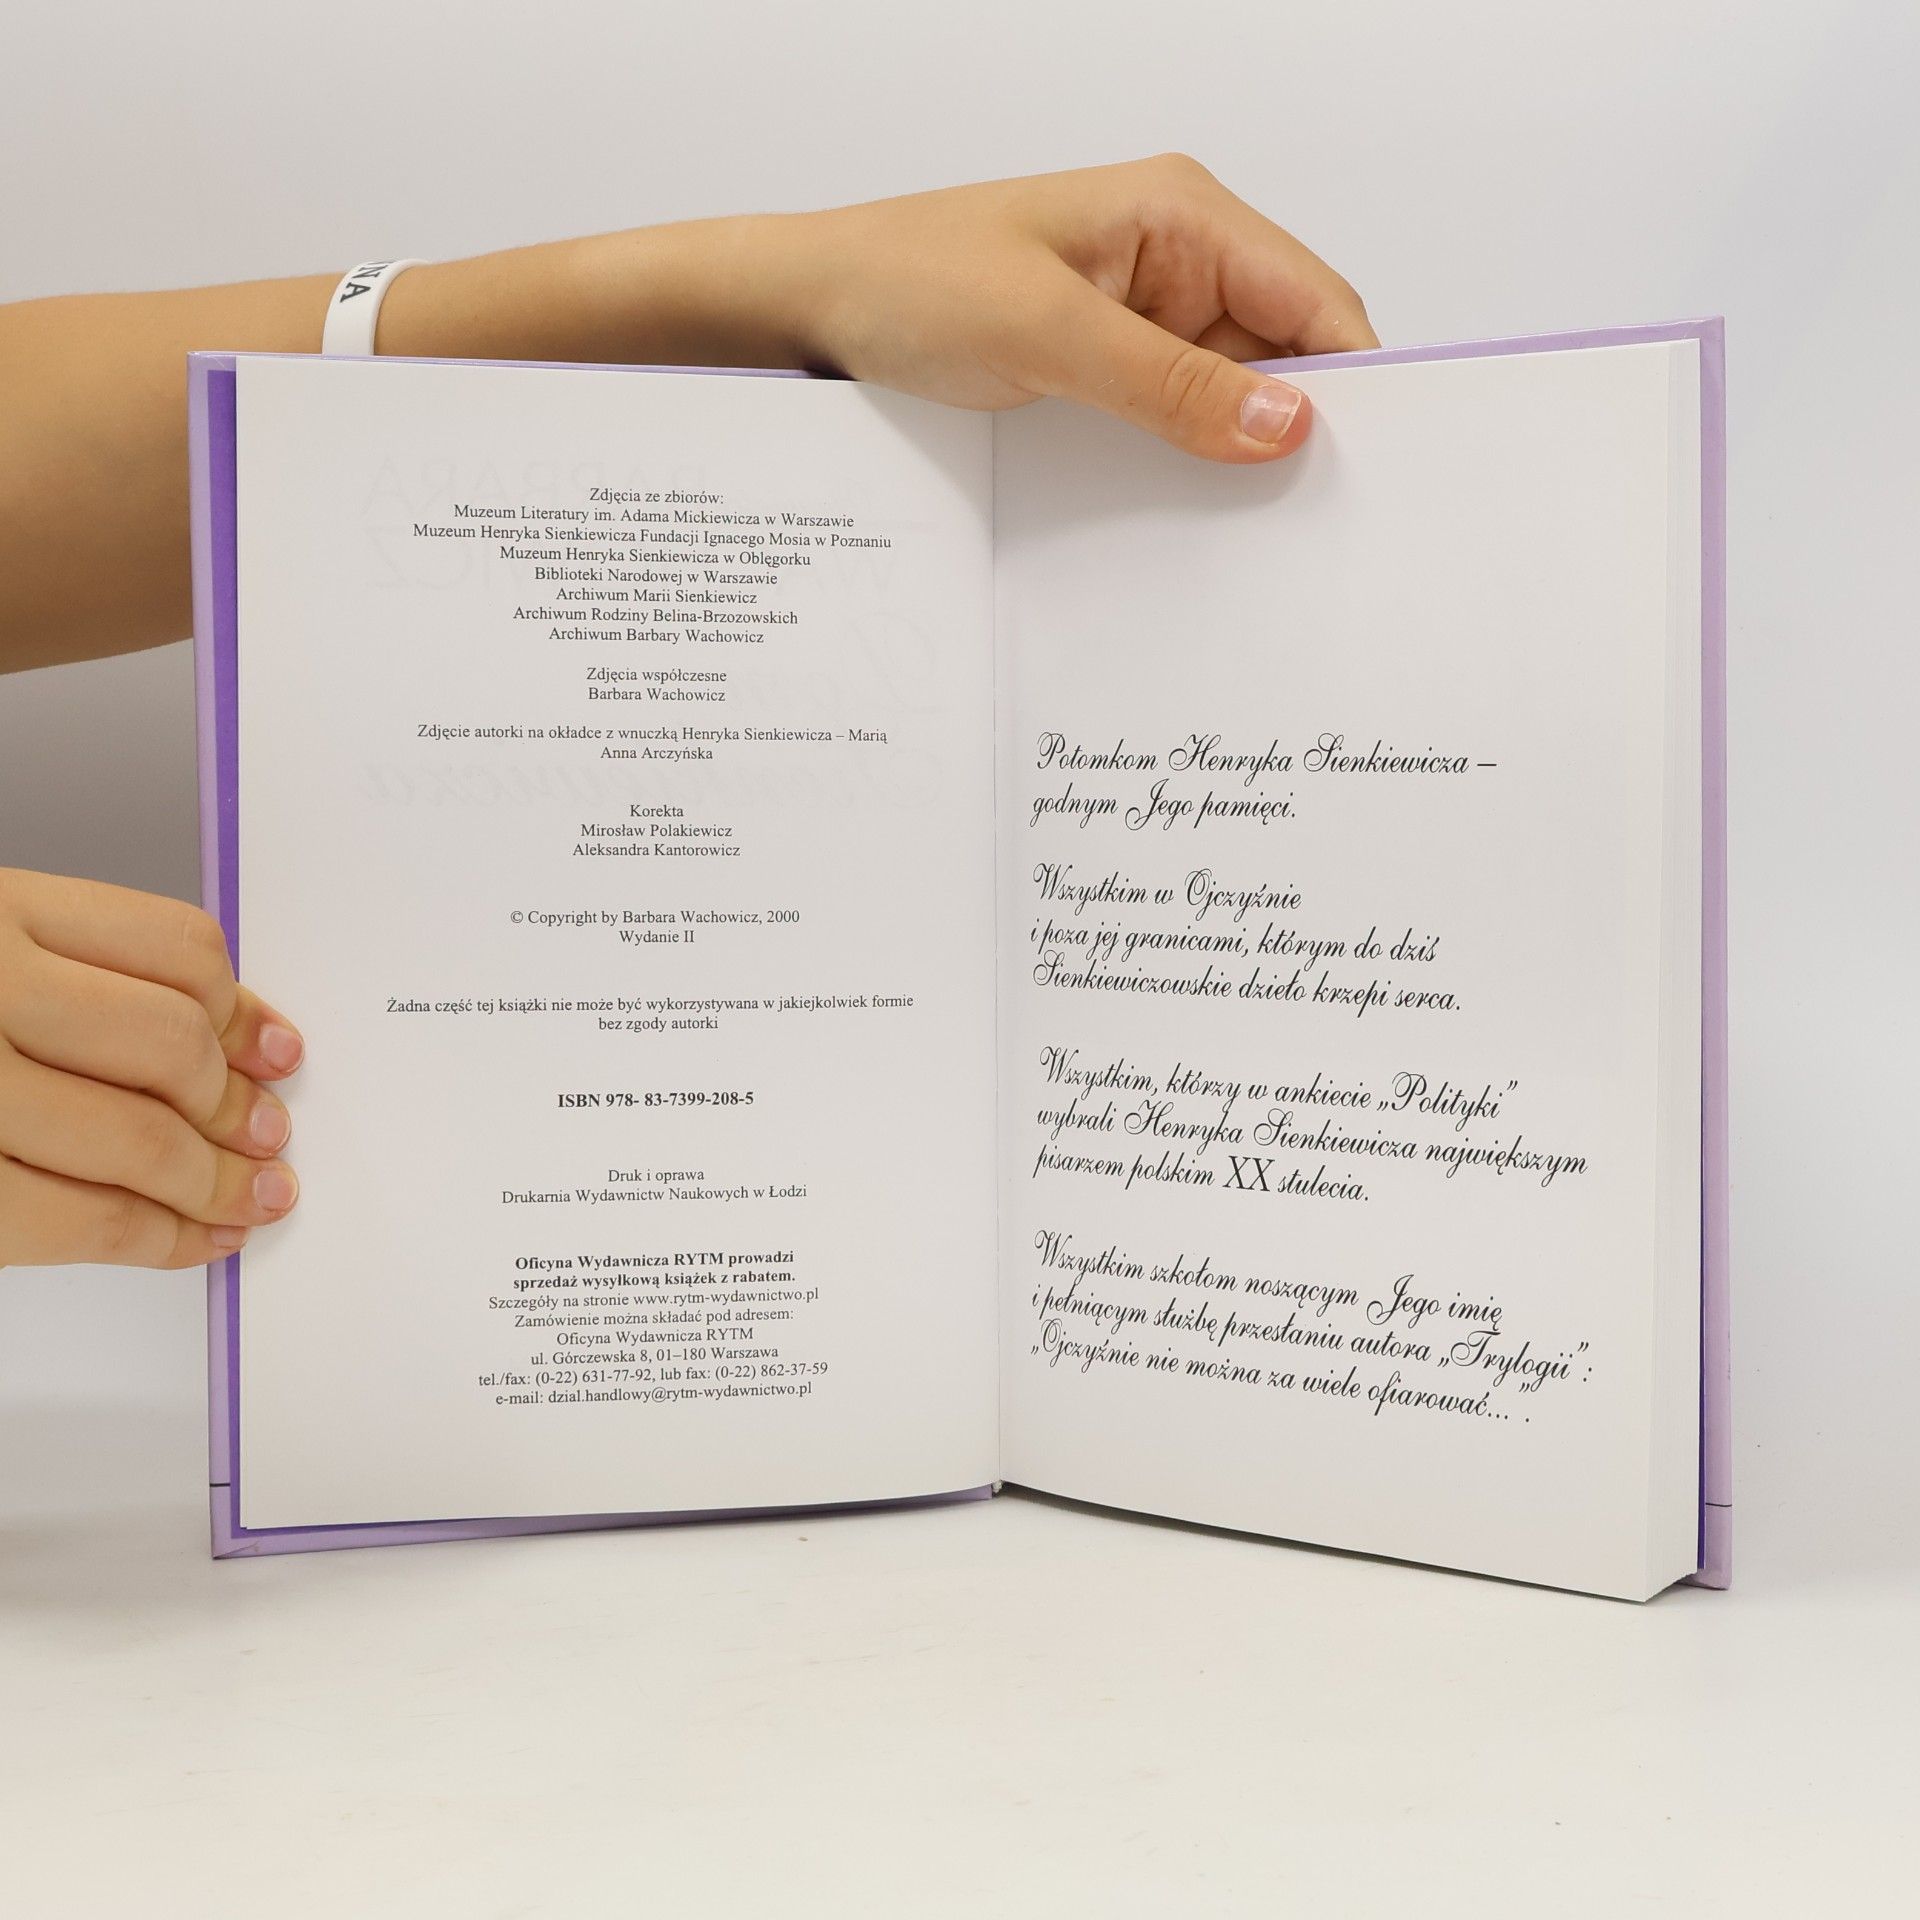 NNA
Zdjęcia ze zbiorów:
Muzeum Literatury im. Adama Mickiewicza w Warszawie
Muzeum Henryka Sienkiewicza Fundacji Ignacego Mosia w Poznaniu
Muzeum Henryka Sienkiewicza w Oblęgorku
Biblioteki Narodowej w Warszawie
Archiwum Marii Sienkiewicz
Archiwum Rodziny Belina-Brzozowskich
Archiwum Barbary Wachowicz
Zdjęcia współczesne
Barbara Wachowicz
Zdjęcie autorki na okładce z wnuczką Henryka Sienkiewicza – Marią
Anna Arczyńska
Korekta
Mirosław Polakiewicz
Aleksandra Kantorowicz
© Copyright by Barbara Wachowicz, 2000
Wydanie II
Żadna część tej książki nie może być wykorzystywana w jakiejkolwiek formie
bez zgody autorki
ISBN 978- 83-7399-208-5
Druk i oprawa
Drukarnia Wydawnictw Naukowych w Łodzi
Oficyna Wydawnicza RYTM prowadzi
sprzedaż wysyłkową książek z rabatem.
Szczegóły na stronie www.rytm-wydawnictwo.pl
Zamówienie można składać pod adresem:
Oficyna Wydawnicza RYTM
ul. Górczewska 8, 01–180 Warszawa
tel./fax: (0-22) 631-77-92, lub fax: (0-22) 862-37-59
e-mail: dzial.handlowy@rytm-wydawnictwo.pl
Potomkom Henryka Sienkiewicza –
godnym Jego pamięci.
Wszystkim w Ojczyźnie
i poza jej granicami, którym do dziś
Sienkiewiczowskie dzieło krzepi serca.
Wszystkim, którzy w ankiecie „Polityki”
wybrali Henryka Sienkiewicza największym
pisarzem polskim XX stulecia.
Wszystkim szkołom noszącym Jego imię
i pełniącym służbę przesłaniu autora „Trylogii”:
„Ojczyźnie nie można za wiele ofiarować...”.